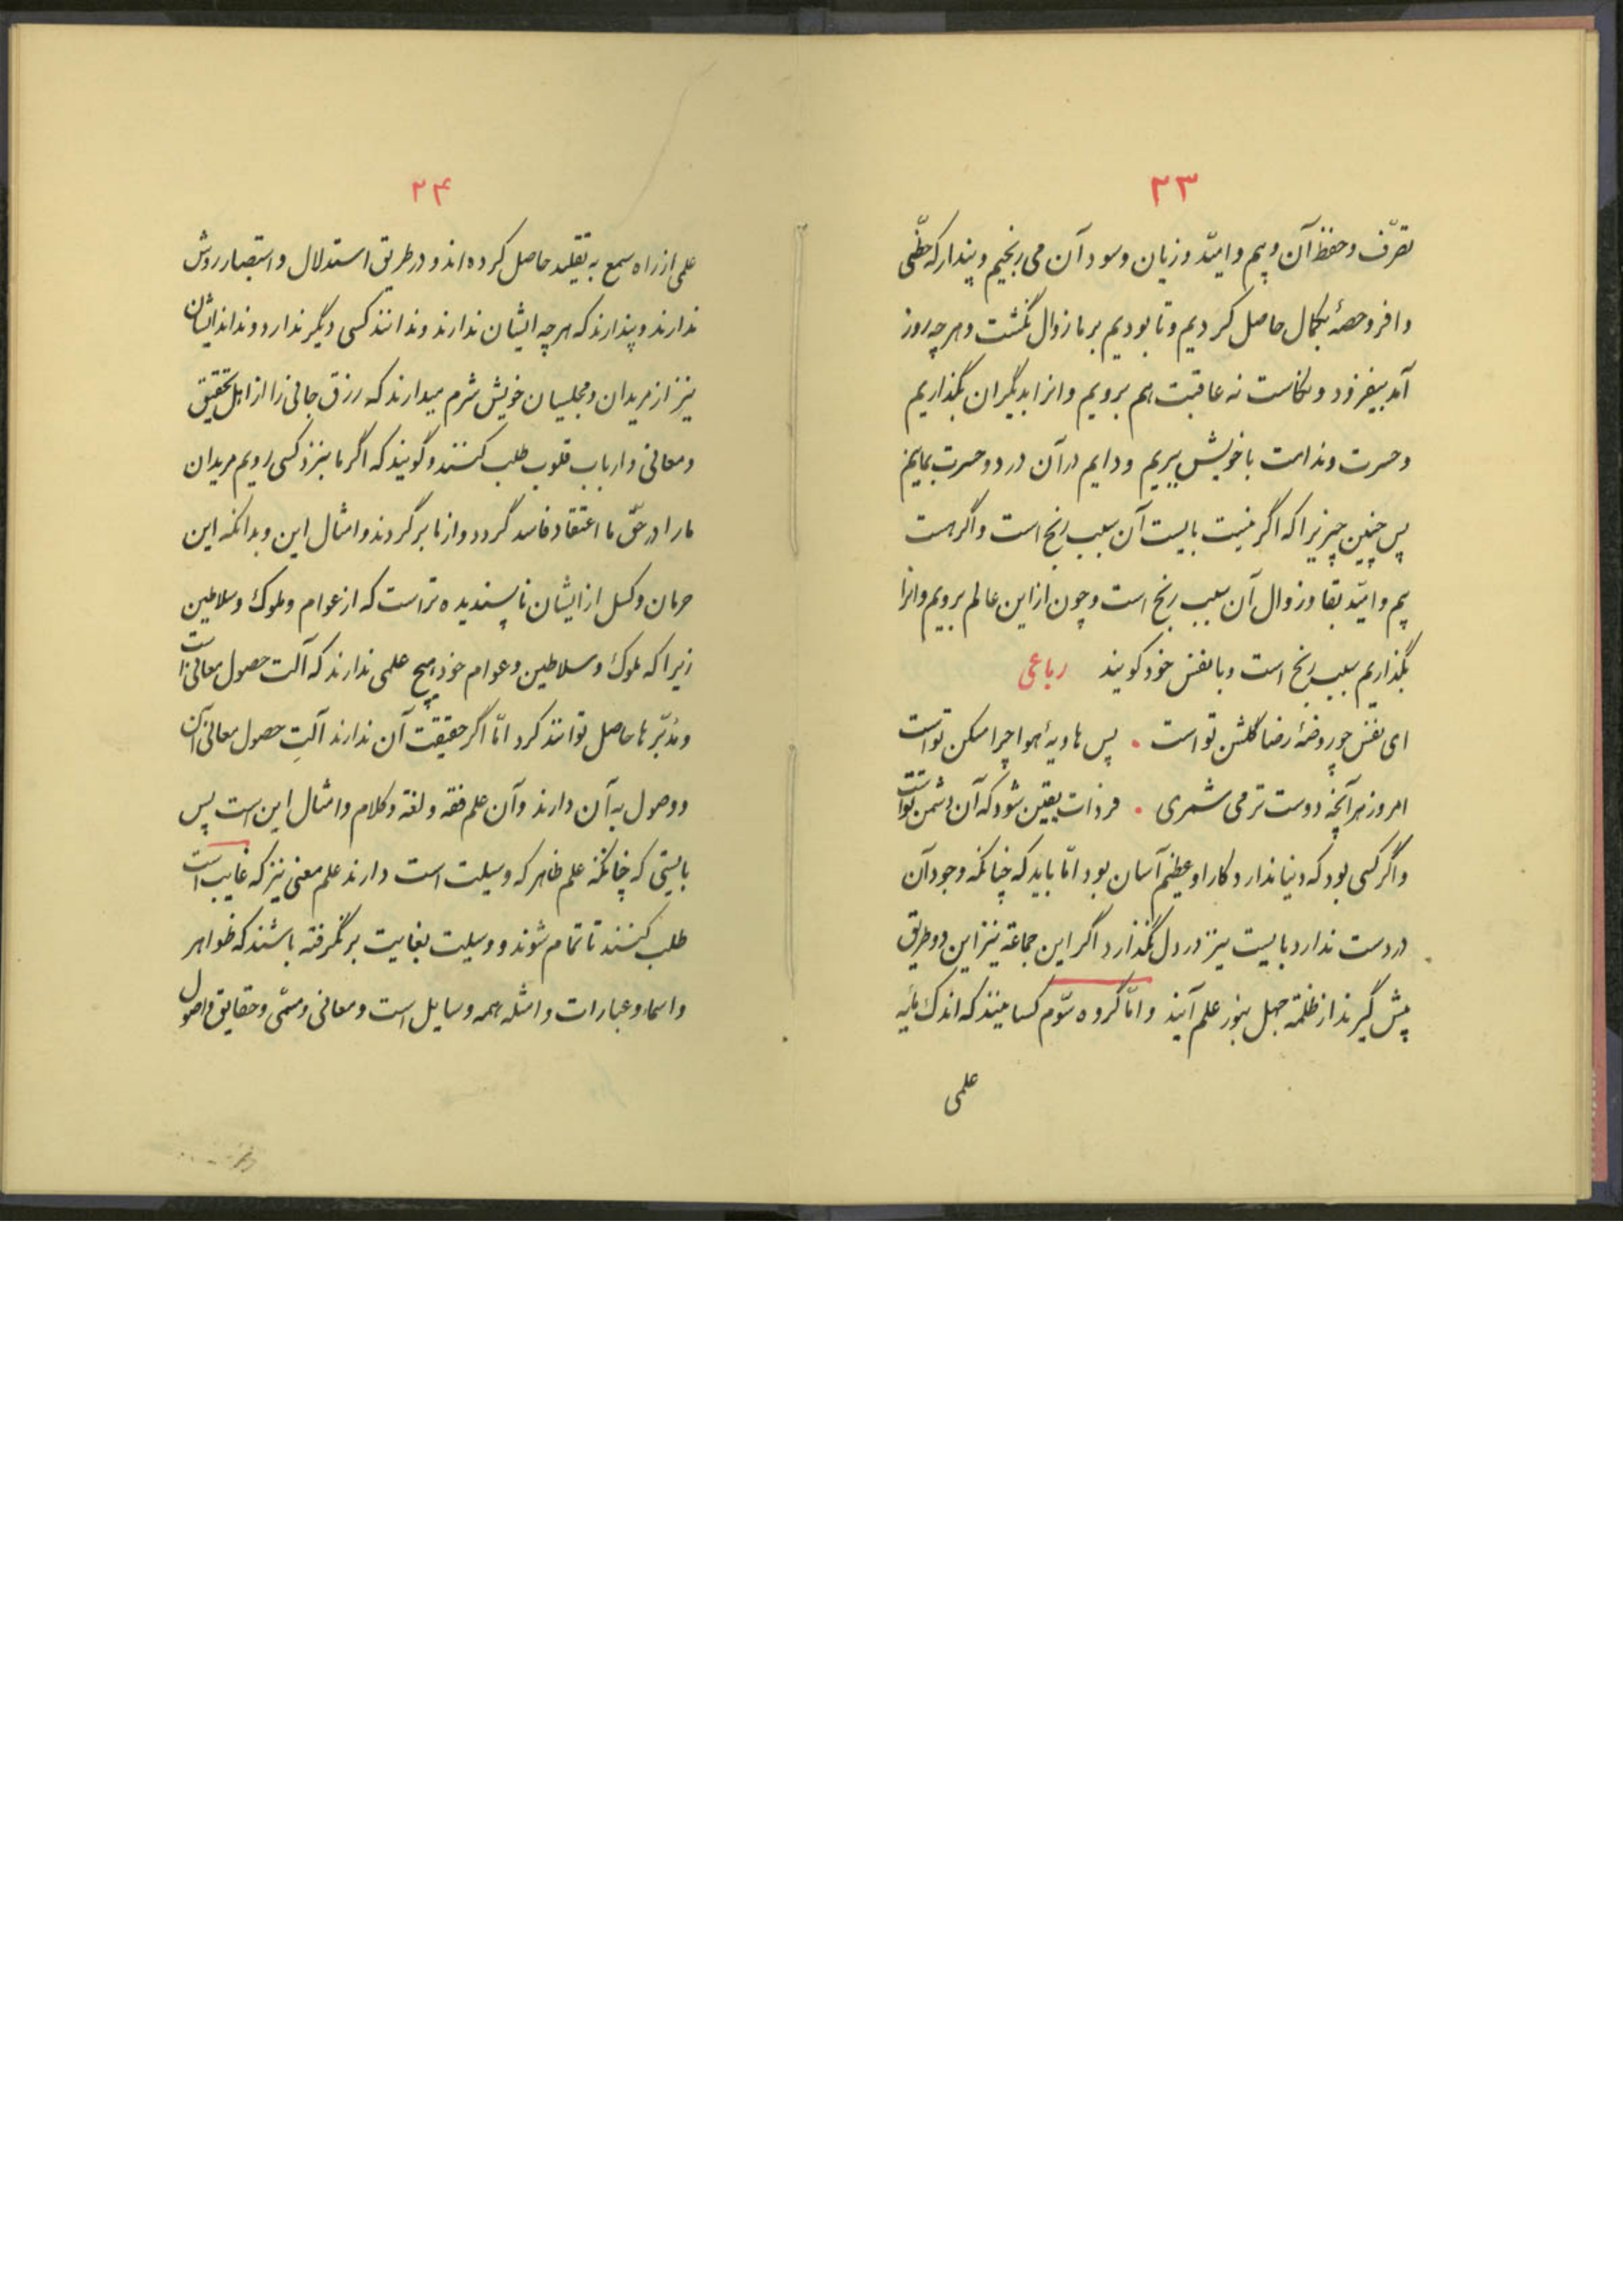 ۲۳
تصرّف و حفظ آن و بیم و امیّد و زیان و سود آن می رنجیم و پندار که حظّی
وافر و حصهٔ بکمال حاصل کردیم و تا بودیم بر ما زوال نگشت و هر چه روز
آمد بیفزود و نکاست نه عاقبت هم برویم و انرا بدیگران بگذاریم
و حسرت و ندامت با خویش ببریم و دایم در آن درد و حسرت بمانیم
پس چنین چیز زیرا که اگر نیست بایست آن سبب رنج است و اگر هست
بیم و امیّد بقا و زوال آن سبب رنج است و چون از این عالم برویم و انرا
بگذاریم سبب رنج است و با نفس خود گویند رباعی
ای نفس چو روضهٔ رضا گلشن تو است • پس هاویهٔ هوا چرا مسکن تو است
امروز هر آنچه دوست تر می شمری • فردات یقین شود که آن دشمن تو است
و اگر کسی بود که دنیا ندارد کار او عظیم آسان بود امّا باید که چنانکه وجود آن
در دست ندارد بایست نیز در دل نگذارد اگر این جماعة نیز این دو طریق
پیش گیرند از ظلمة جهل بنور علم آیند و امّا گروه سوّم کسانیند که اندک مایه
علمی
۲۴
علمی از راه سمع به تقلید حاصل کرده اند و در طریق استدلال و استبصار روش
ندارند و پندارند که هر چه ایشان ندارند و ندانند کسی دیگر ندارد و نداند ایشان
نیز از مریدان و مجلسیان خویش شرم میدارند که رزق جانی را از اهل تحقیق
و معانی و ارباب قلوب طلب کنند و گویند که اگر ما بنزد کسی رویم مریدان
ما را در حقّ ما اعتقاد فاسد گردد و از ما برگردند و امثال این و بدانکه این
حرمان و کسل از ایشان ناپسندیده تر است که از عوام و ملوک و سلاطین
زیرا که ملوک و سلاطین و عوام خود هیچ علمی ندارند که آلت حصول معانی است
و مُدبّر ها حاصل توانند کرد امّا اگر حقیقت آن ندارند آلتِ حصول معانی آن
و وصول به آن دارند و آن علم فقه و لغة و کلام و امثال این است پس
بایستی که چنانکه علم ظاهر که وسیلت است دارند علم معنی نیز که غایب است
طلب کنند تا تمام شوند و وسیلت بغایت بر نگرفته باشند که ظواهر
و اسما و عبارات و امثله همه وسایل است و معانی و مسمّی و حقایق و اصول